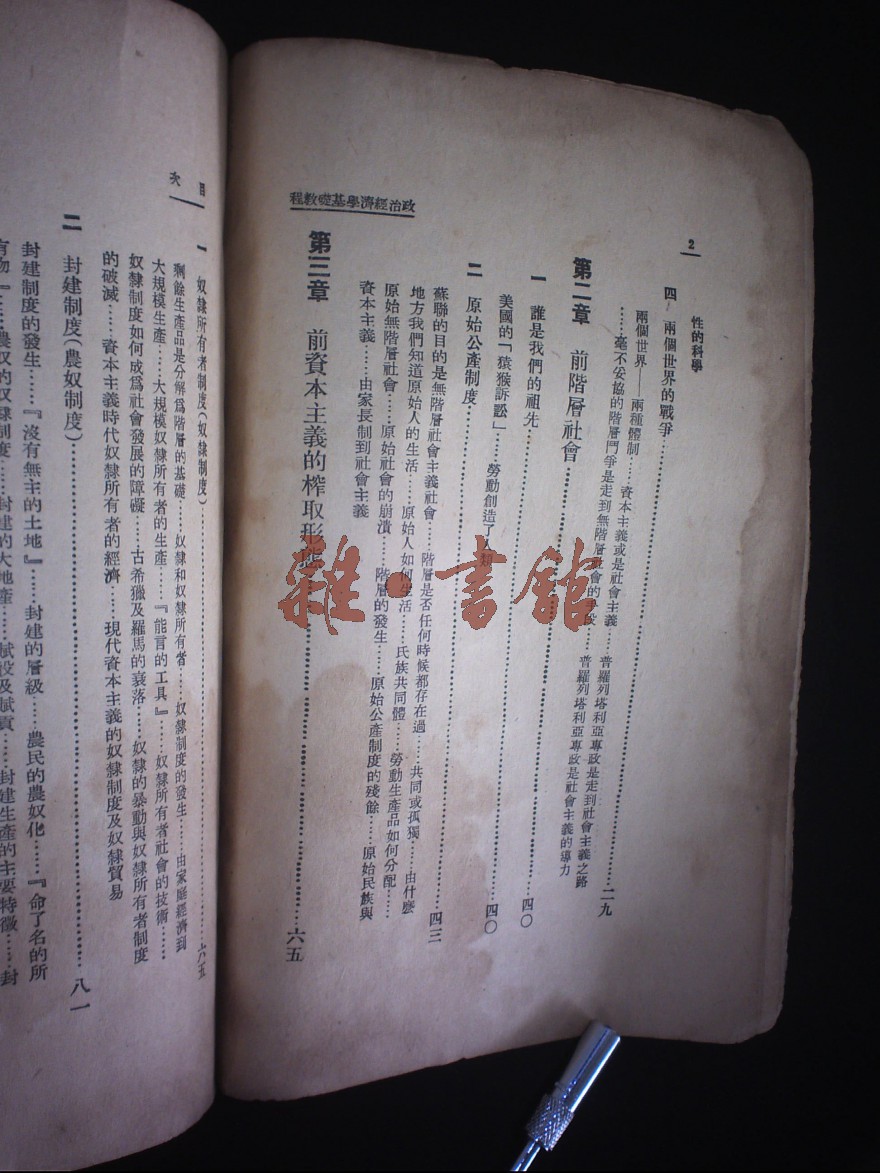 2
性的科學
四 兩個世界的戰爭……二九
兩個世界——兩種體制……資本主義或是社會主義……普羅列塔利亞專政是走到社會主義之路
……毫不妥協的階層鬥爭是走到無階層社會的手段……普羅列塔利亞專政是社會主義的導力
第二章 前階層社會……四〇
一 誰是我們的祖先……四〇
美國的「猿猴訴訟」……勞動創造了人類
二 原始公產制度……四三
蘇聯的目的是無階層社會主義社會……階層是否任何時候都存在過……共同或孤獨……由什麽
地方我們知道原始人的生活……原始人如何生活……氏族共同體……勞動生產品如何分配……
原始無階層社會……原始社會的崩潰……階層的發生……原始公產制度的殘餘……原始民族與
資本主義……由家長制到社會主義
第三章 前資本主義的榨取形態……六五
政治經濟學基礎教程
雜·書館
目次
一 奴隸所有者制度(奴隸制度)……六五
剩餘生產品是分解爲階層的基礎……奴隸和奴隸所有者……奴隸制度的發生……由家庭經濟到
大規模生產……大規模奴隸所有者的生產……『能言的工具』……奴隸所有者社會的技術……
奴隸制度如何成爲社會發展的障礙……古希臘及羅馬的衰落……奴隸的暴動與奴隸所有者制度
的破滅……資本主義時代奴隸所有者的經濟……現代資本主義的奴隸制度及奴隸貿易
二 封建制度(農奴制度)……八一
封建制度的發生……『沒有無主的土地』……封建的層級……農民的農奴化……『命了名的所
有物』……農奴的奴隸制度……封建的大地產……賦役及賦貢……封建生產的主要特徵……封